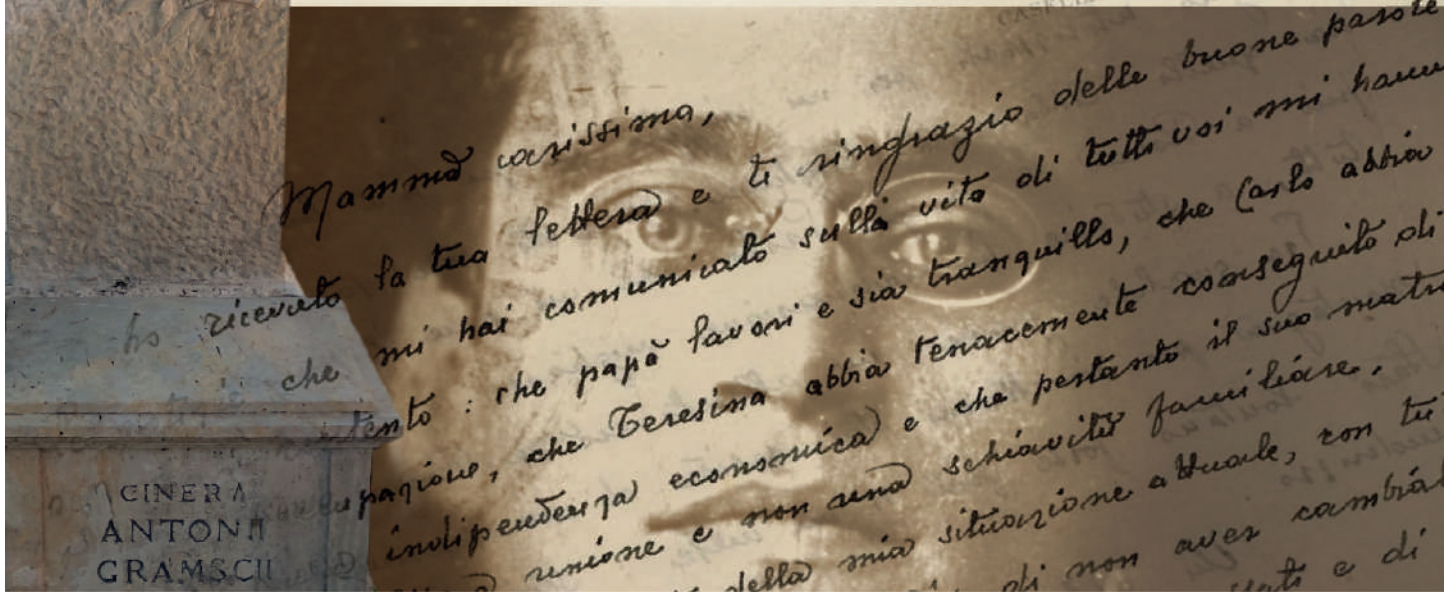 CINERA
ANTONII
GRAMSCII
Mamma carissima,
ho ricevuto la tua lettera e ti ringrazio delle buone parole
che mi hai comunicato sulla vita di tutti voi mi hann
tento : che papà lavori e sia tranquillo, che Carlo abbia
upazione, che Teresina abbia tenacemente conseguito di
indipendenza economica e che pertanto il suo matri
unione e non una schiavitù familiare.
della mia situazione attuale, con tu
di non aver cambiat
e di